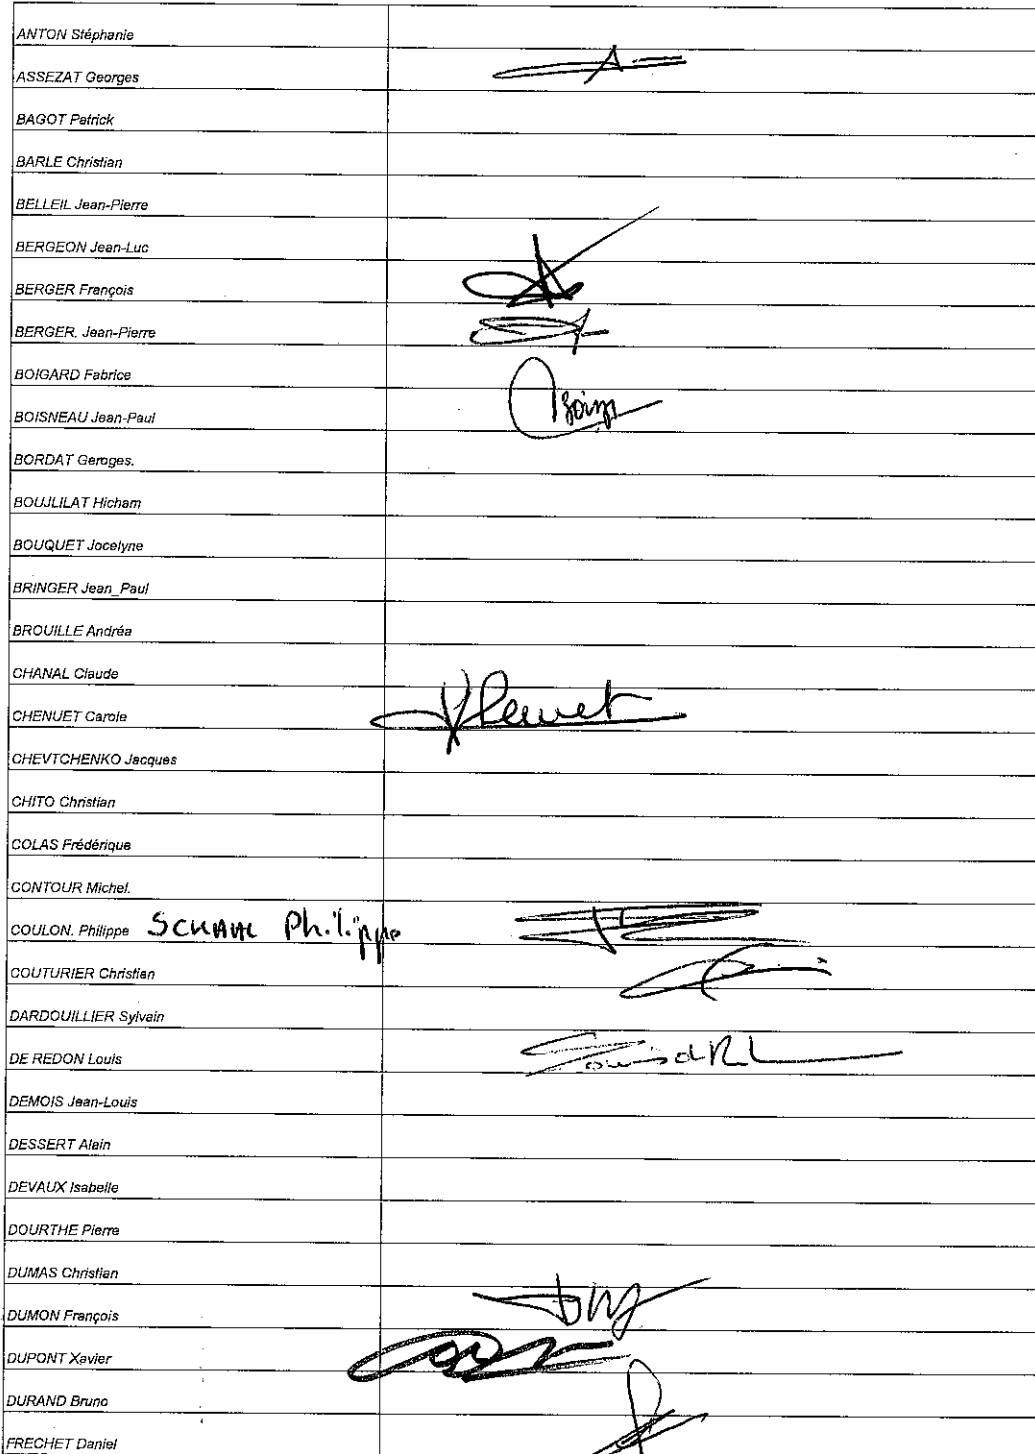 ANTON Stéphanie
ASSEZAT Georges
BAGOT Patrick
BARLE Christian
BELLEIL Jean-Pierre
BERGEON Jean-Luc
BERGER François
BERGER. Jean-Pierre
BOIGARD Fabrice
BOISNEAU Jean-Paul
BORDAT Geroges.
BOUJLILAT Hicham
BOUQUET Jocelyne
BRINGER Jean_Paul
BROUILLE Andréa
CHANAL Claude
CHENUET Carole
CHEVTCHENKO Jacques
CHITO Christian
COLAS Frédérique
CONTOUR Michel.
COULON. Philippe Philippe
COUTURIER Christian
DARDOUILLIER Sylvain
DE REDON Louis
DEMOIS Jean-Louis
DESSERT Alain
DEVAUX Isabelle
DOURTHE Pierre
DUMAS Christian
DUMON François
DUPONT Xavier
DURAND Bruno
FRECHET Daniel